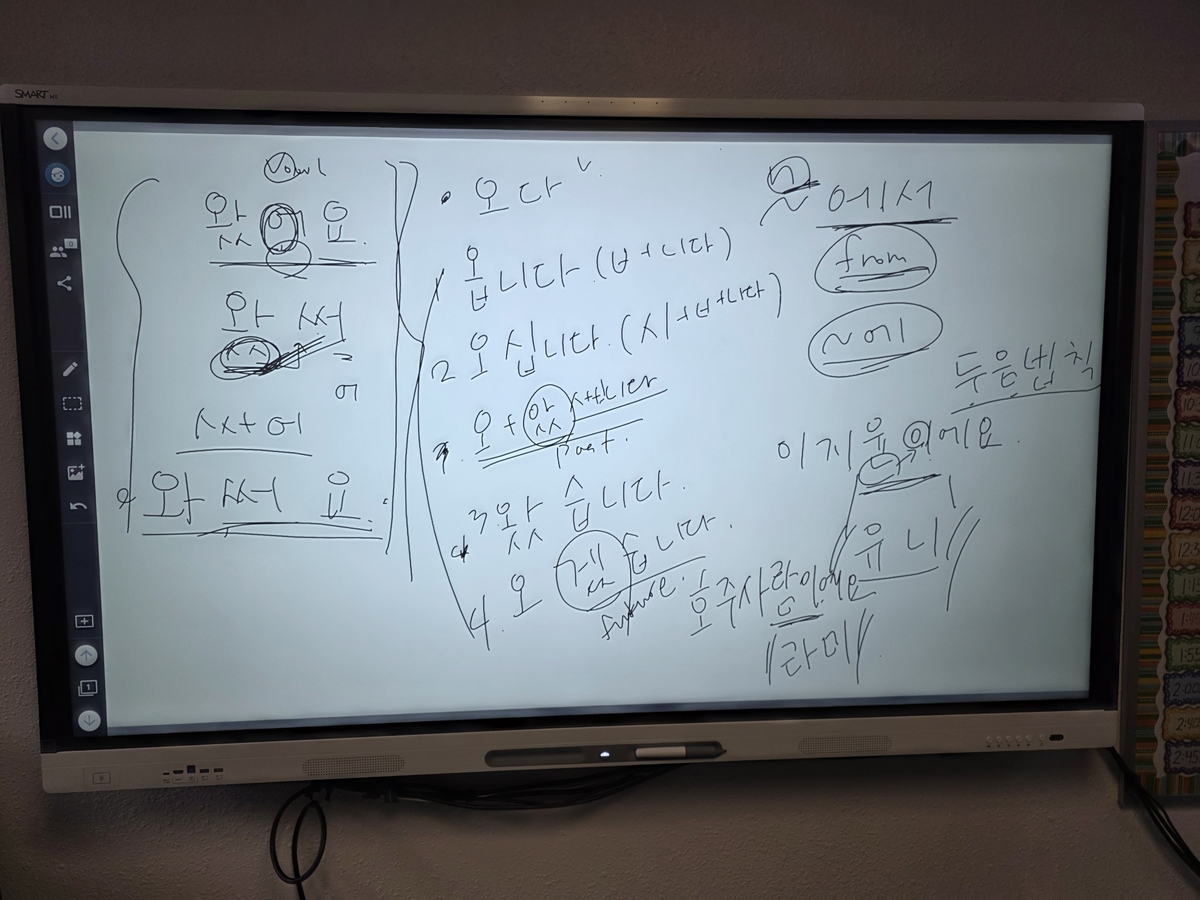 SMART
Vowel
왔어요.
와쒀
ㅓ
ㅆ+어
와써 요.
오다 v.
1 옵니다. (ㅂ+니다)
2 오십니다. (시+ㅂ+니다)
오+았+습니다
past.
3. 왔습니다.
4. 오겠습니다.
future.
~에서
from
~에
두음법칙
이지윤이에요.
/유니/
호주사람이에요
/라미/